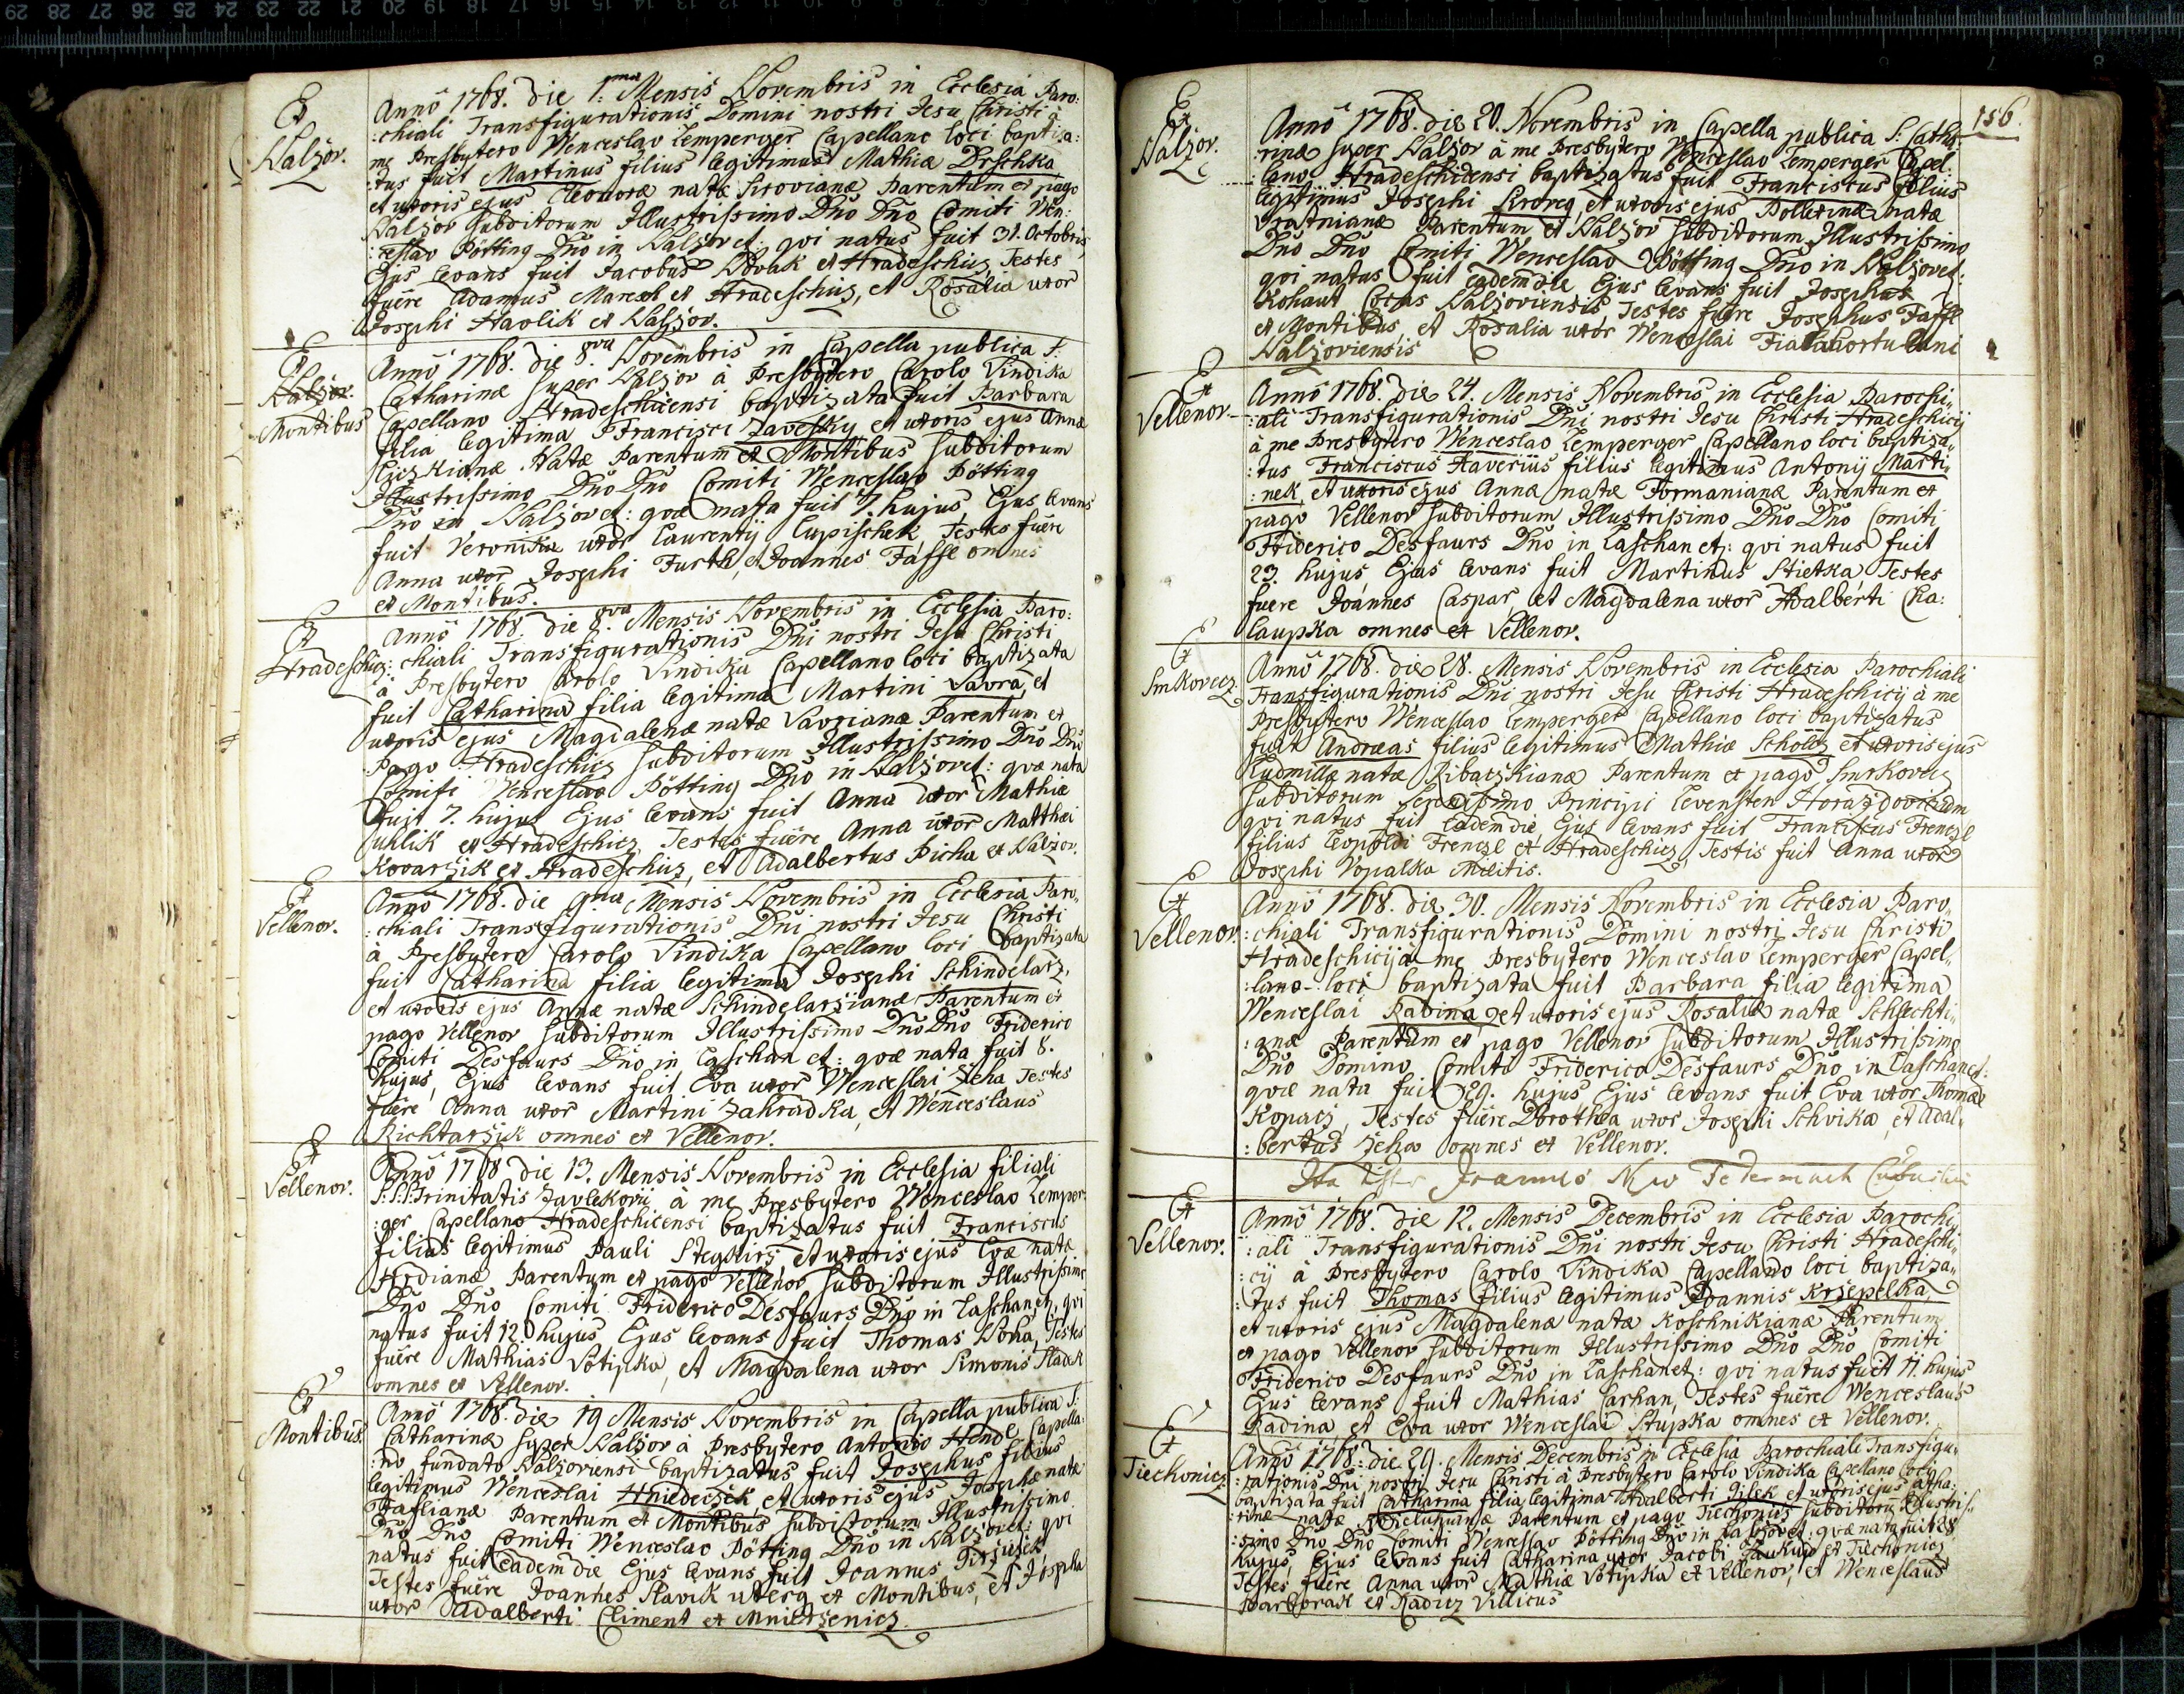 Ex
Nalzov.
Anno 1768. die 1:ma Mensis Novembris in Ecclesia Paro:
:chiali Transfigurationis Domini nostri Jesu Christi à
me Presbytero Wenceslao Lemperger Capellano loci baptiza:
:tus fuit Martinus filius legitimus Mathiæ Drschka
et uxoris ejus Eleonoræ natæ Sirovianæ Parentum ex pago
Nalzov subditorum Illustrissimo Dno Dno Comiti Wen:
:ceslao Pötting Dno in Nalzov et: qvi natus fuit 31. Octobris,
Ejus levans fuit Jacobus Novak ex Hradeschicz, Testes
fuêre Adamus Maresch ex Hradeschicz, et Rosalia uxor
Josephi Havlik ex Nalzov.
Ex
Nalzov.
Montibus
Anno 1768. die 8.va Novembris in Capella publica S:
Catharinæ super Nalzov à Presbytero Carolo Vindika
Capellano Hradeschicensi baptizata fuit Barbara
filia legitima Francisci Zavesky et uxoris ejus Annæ
natæ Parentum ex Montibus subditorum
Illustrissimo Dno Dno Comiti Wenceslao Pötting
Dno in Nalzov et: qvæ nata fuit 7. hujus, Ejus levans
fuit Veronika uxor Laurentij Lupischek, Testes fuêre
Anna uxor Josephi Furth, et Joannes Faffl omnes
ex Montibus.
Ex
Hradeschicz:
Anno 1768. die 8.va Mensis Novembris in Ecclesia Paro:
chiali Transfigurationis Dni nostri Jesu Christi
à Presbytero Carolo Vindika Capellano loci baptizata
fuit Catharina filia legitima Martini Vavra, et
uxoris ejus Magdalenæ natæ Vavrianæ Parentum ex
Pago Hradeschicz subditorum Illustrissimo Dno Dno
Comiti Wenceslao Pötting Dno in Nalzov et: qvæ nata
fuit 7. hujus Ejus levans fuit Anna uxor Mathiæ
Uhlik ex Hradeschicz, Testes fuêre Anna uxor Matthæi
Kovarzik ex Hradeschicz, et Adalbertus Picha ex Nalzov.
Ex
Vellenov.
Anno 1768. die 9.na Mensis Novembris in Ecclesia Paro,,
:chiali Transfigurationis Dni nostri Jesu Christi
à Presbytero Carolo Vindika Capellano loci baptizata
fuit Catharina filia legitima Josephi Schindelarz,
et uxoris ejus Annæ natæ Schindelarzianæ Parentum ex
pago Vellenov subditorum Illustrissimo Dno Dno Friderico
Comiti Desfaurs Dno in Laschan et: qvæ nata fuit 8.
hujus, Ejus levans fuit Eva uxor Wenceslai Zeha Testes
fuêre Anna uxor Martini Zahradka, et Wenceslaus
Richtarzik omnes ex Vellenov.
Ex
Vellenov.
Anno 1768 die 13. Mensis Novembris in Ecclesia filiali
S:S:S: Trinitatis Zavlekovii à me Presbytero Wenceslao Lemper:
:ger Capellano Hradeschicensi baptizatus fuit Franciscus
filius legitimus Pauli et uxoris ejus Evæ natæ
Hrdianæ Parentum ex pago Vellenov subditorum Illustrissimo
Dno Dno Comiti Friderico Desfaurs Dno in Laschan et: qvi
natus fuit 12. hujus, Ejus levans fuit Thomas Noha, Testes
fuêre Mathias Votipka, et Magdalena uxor Simonis Sladek
omnes ex Vellenov.
Ex
Montibus.
Anno 1768. die 19 Mensis Novembris in Capella publica S:
Catharinæ super Nalzov à Presbytero Antonio Hende Capella:
:no fundato Nalzoviensi baptizatus fuit Josephus filius
legitimus Wenceslai Hniedeczek, et uxoris ejus Josephæ natæ
Faflianæ Parentum ex Montibus subditorum Illustrissimo
Dno Dno Comiti Wenceslao Pötting Dno in Nalzov et: qvi
natus fuit eadem die Ejus levans fuit Joannes
Testes fuêre Joannes Slavik uterq ex Montibus, et Josepha
uxor Adalberti Climent ex Mnietzenicz.
156.
Ex
Nalzov.
Anno 1768. die 20. Novembris in Capella publica S: Catha:
rinæ super Nalzov à me Presbytero Wenceslao Lemperger Capel:
:lano Hradeschicensi baptizatus fuit Franciscus filius
legitimus Josephi et uxoris ejus natæ
Vratnianæ Parentum ex Nalzov subditorum Illustrissimo
Dno Dno Comiti Wenceslao Pötting Dno in Nalzov et:
qvi natus fuit eadem die Ejus levans fuit Josephus
Kohaut Cocus Nalzoviensis, Testes fuêre Josephus Faffl
ex Montibus, et Rosalia uxor Wenceslai Fiala hortulani
Nalzoviensis
Ex
Vellenov.
Anno 1768. die 24. Mensis Novembris in Ecclesia Parochi,,
:ali Transfigurationis Dni nostri Jesu Christi Hradeschicij
à me Presbytero Wenceslao Lemperger Capellano loci baptiza,,
:tus Franciscus Xaverius filius legitimus Antonij Marti,,
:nek, et uxoris ejus Annæ natæ Formanianæ Parentum ex
pago Vellenov subditorum Illustrissimo Dno Dno Comiti
Friderico Desfaurs Dno in Laschan et: qvi natus fuit
23. hujus Ejus levans fuit Martinus Stietka, Testes
fuere Joannes Caspar, et Magdalena uxor Adalberti Cha:
laupka omnes ex Vellenov.
Ex
Smrkovecz
Anno 1768. die 28. Mensis Novembris in Ecclesia Parochiali
Transfigurationis Dni nostri Jesu Christi Hradeschicij à me
Presbytero Wenceslao Lemperger Capellano loci baptizatus
fuit Andreas filius legitimus Mathiæ Scholtz et uxoris ejus
Ludmillæ natæ Ribaczkianæ Parentum ex pago Smrkovecz
subditorum Serenissimo Principi Levensten
qvi natus fuit eadem die, Ejus levans fuit Franciscus Frenczl
filius Leopoldi Frenczl ex Hradeschicz, Testis fuit Anna uxor
Josephi Vopalka Militis.
Ex
Vellenov
Anno 1768. die 30. Mensis Novembris in Ecclesia Paro,,
:chiali Transfigurationis Domini nostri Jesu Christi
Hradeschicij à me Presbytero Wenceslao Lemperger Capel,,
:lano loci baptizata fuit Barbara filia legitima
Wenceslai Radina, et uxoris ejus Rosaliæ natæ Schlechti,,
:anæ Parentum ex pago Vellenov subditorum Illustrissimo
Dno Domino Comiti Friderico Desfaurs Dno in Laschan et:
qvæ nata fuit 29. hujus Ejus levans fuit Eva uxor Thomæ
Kopacz, Testes fuêre Dorothea uxor Josephi Schvika, et Adal,,
:bertus Zeha omnes ex Vellenov.
Ita
Ex
Vellenov.
Anno 1768. die 12. Mensis Decembris in Ecclesia Parochi,,
:ali Transfigurationis Dni nostri Jesu Christi Hradeschi,,
:cij à Presbytero Carolo Vindika Capellano loci baptiza,,
:tus fuit Thomas filius legitimus Joannis Krzepelka,
et uxoris ejus Magdalenæ natæ Koschnikianæ Parentum
ex pago Vellenov subditorum Illustrissimo Dno Dno Comiti
Friderico Desfaurs Dno in Laschan et: qvi natus fuit 11. hujus
Ejus levans fuit Mathias Carhan, Testes fuêre Wenceslaus
Radina, et Eva uxor Wenceslai Stupka omnes ex Vellenov.
Ex
Tiechonicz
Anno 1768: die 29. Mensis Decembris in Ecclesia Parochiali Transfigu,,
:rationis Dni nostri Jesu Christi à Presbytero Carolo Vindika Capellano loci
baptizata fuit Catharina filia legitima Adalberti Jilek et uxoris ejus Catha:
:rinæ natæ Parentum ex pago Tiechonicz subditorum Illustris:
:simo Dno Dno Comiti Wenceslao Pötting Dno in Nalzov et: qvæ nata fuit 28
hujus, Ejus levans fuit Catharina uxor Jacobi ex Tiechonicz
Testes fuêre Anna uxor Mathiæ Votipka ex Vellenov, et Wenceslaus
ex Radicz Villicus